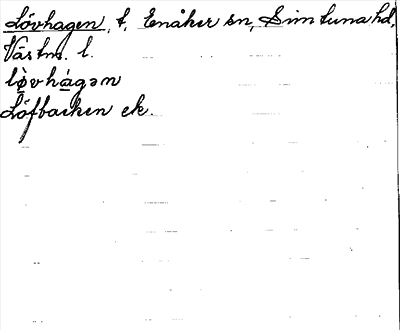 Lövhagen, t, Enåker sn, Simtuna hd,
Västm. l.
lö̀vhágən
Löfbacken ek.